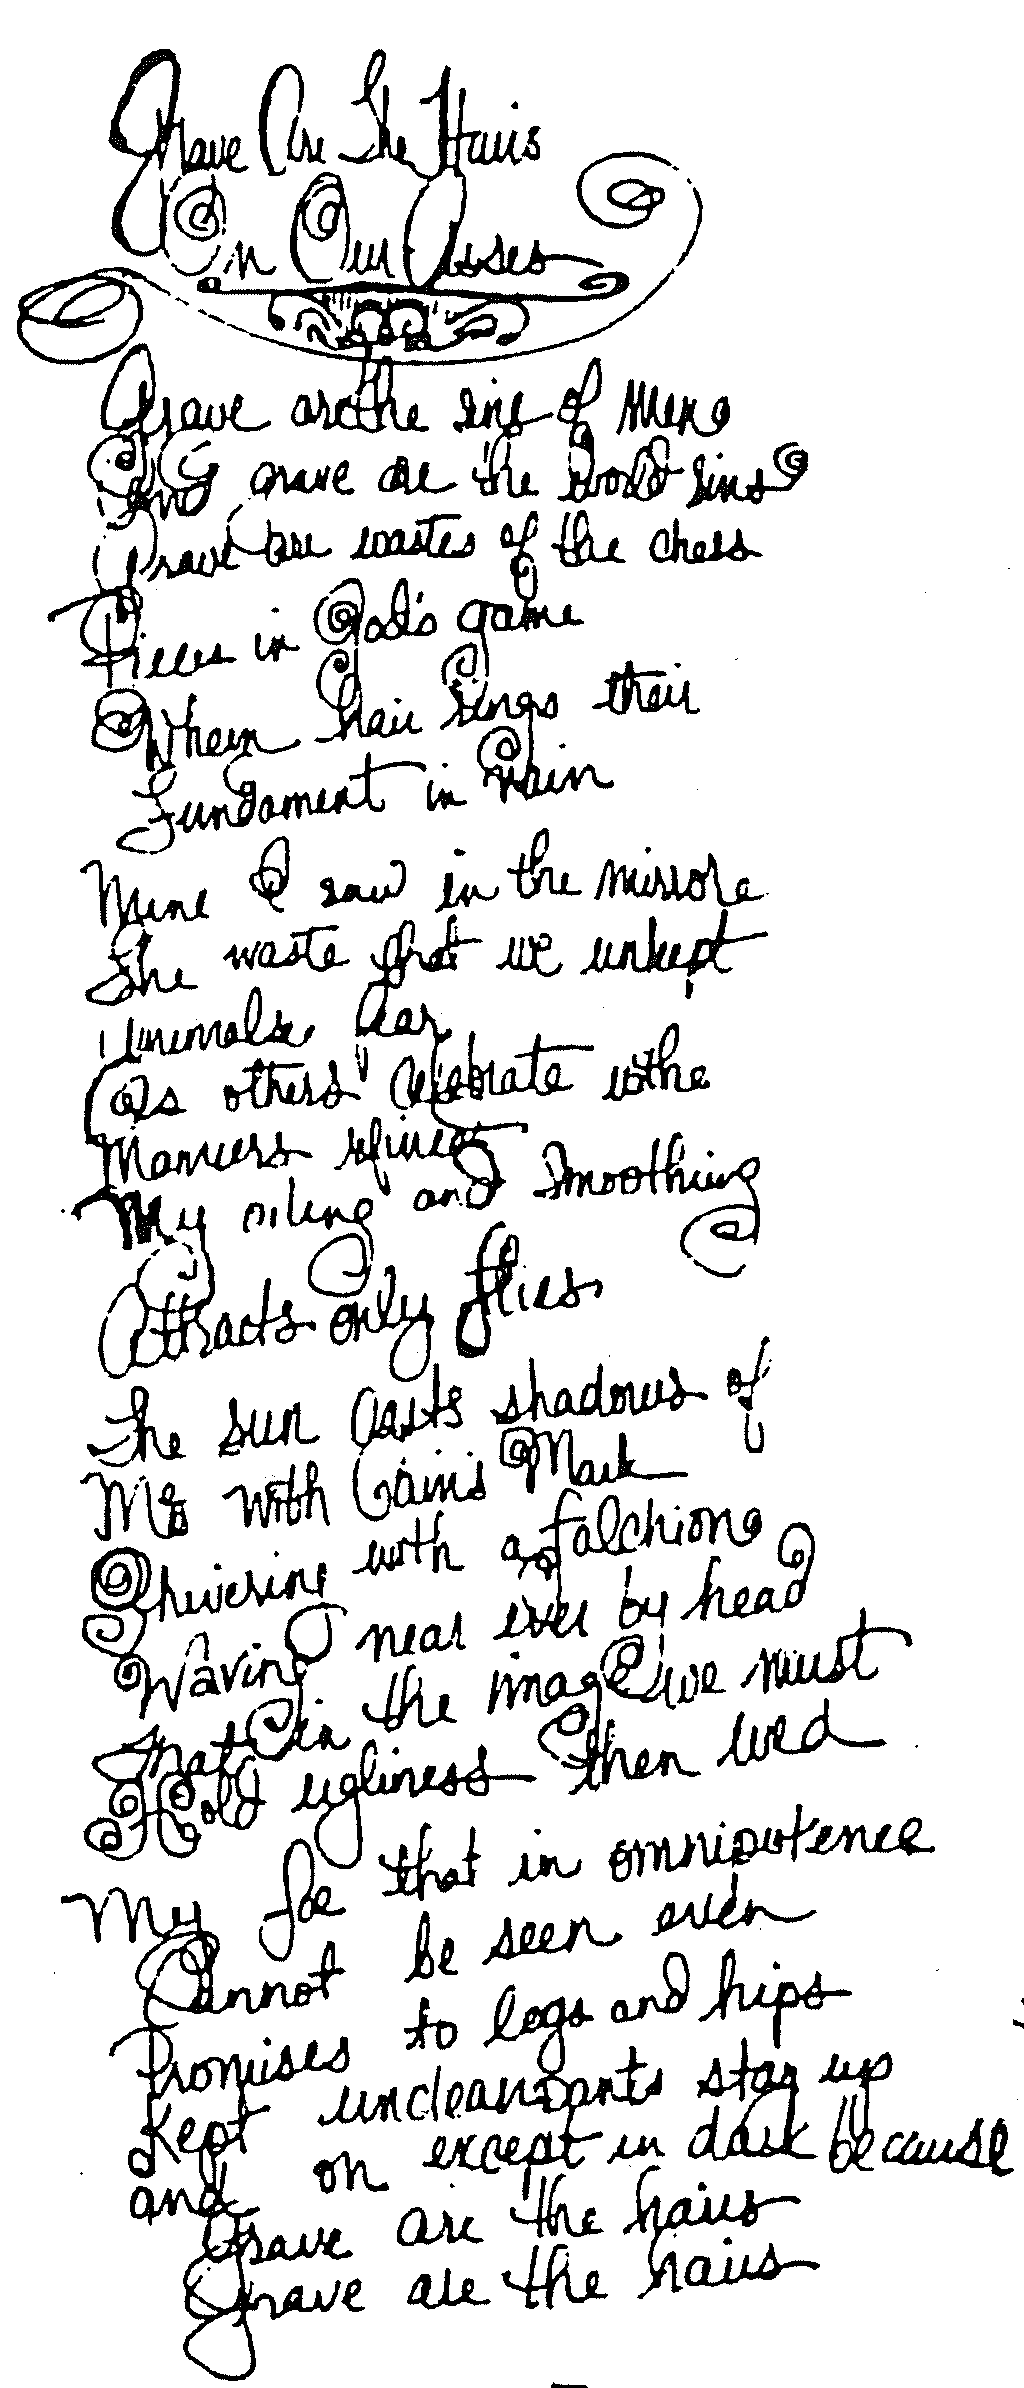 Grave Are The Hairs
On Our Asses
Grave are the sins of men
And grave are the world sins
Grave are wastes of the chess
Pieces in God's game
Whem hair sings their
Fundament in vain
Mine I saw in the mirrore
The waste that we unkept
Animals bear
As others celebrate withe
Manners refined
My oiling and smoothing
Attracts only flies
The sun casts shadows of
Me with Cain's Mark
Shivering with a falchion
Waving near ever by head
That in the image we must
Hold ugliness then wed
My foe that in omnipotence
Cannot be seen even
Promises to legs and hips
Kept unclean pants stay up
and on except in dark because
Grave are the hairs
Grave are the hairs